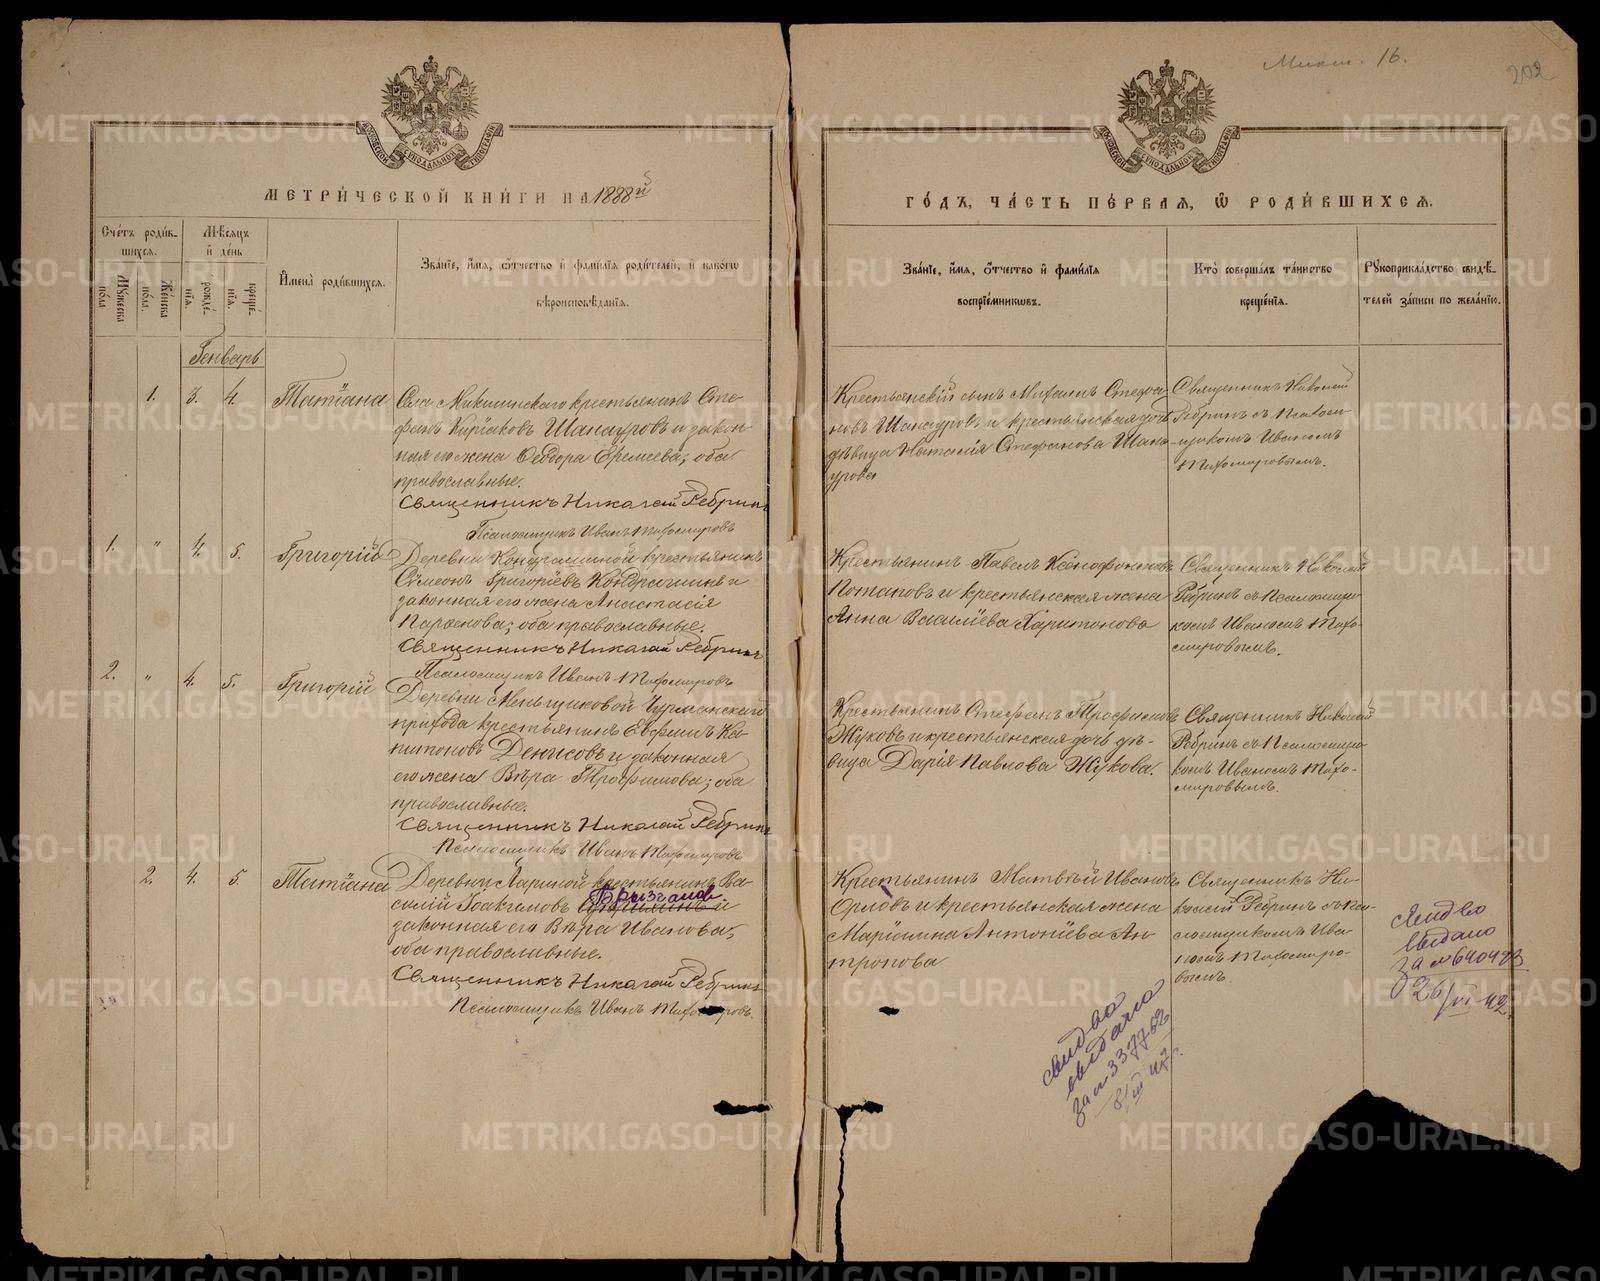 Микш. 16.
202
МОСКОВСКОЙ СѴНОДАЛЬНОЙ ТИПОГРАФІИ
МОСКОВСКОЙ СѴНОДАЛЬНОЙ ТИПОГРАФІИ
МЕТРИ́ЧЕСКОЙ КНИ́ГИ НА 1888й
ГО́ДЪ, ЧА́СТЬ ПЕ́РВАЯ, Ѽ РОДИ́ВШИХСЯ.
Сче́тъ роди́в-
шихся.
Му́жеска по́ла.
Же́нска по́ла.
Мѣ́сяцъ и҆ де́нь
рожде́нїя.
креще́нїя.
И҆мена̀ роди́вшихся.
Зва́нїе, и҆́мя, ѻ҆́тчество и҆ фами́лїя роди́телей, и҆ како́гѡ
вѣроисповѣ́данїя.
Зва́нїе, и҆́мя, ѻ҆́тчество и҆ фами́лїя
воспрїе́мниковъ.
Кто̀ соверша́лъ та́инство
креще́нїя.
Рꙋкоприкла́дство свидѣ́-
телей за́писи по жела́нїю.
Генварь
1. 3. 4.
Татїана
Села Микшинскаго крестьянинъ Сте-
фанъ Кирїаковъ Шанауровъ и закон-
ная его жена Ѳеодора Еремеева; оба
православные.
Священникъ Николай Ребринъ
Псаломщикъ Иванъ Тихомировъ
Крестьянскїй сынъ Михаилъ Стефа
новъ Шанауровъ и крестьянская дочь
дѣвица Наталїя Стефанова Шана
урова
Священникъ Николай
Ребринъ съ Псалом-
щикомъ Иваномъ
Тихомировымъ.
1. " 4. 5.
Григорїй
Деревни Кондрашиной крестьянинъ
Сѷмеонъ Григорїевъ Кондрашинъ и
законная его жена Анастасїя
Парѳенова; оба православные.
Священникъ Николай Ребринъ
Псаломщикъ Иванъ Тихомировъ
Крестьянинъ Павелъ Ксенофонтовъ
Потаповъ и крестьянская жена
Анна Василїева Харитонова
Священникъ Николай
Ребринъ съ Псаломщи
комъ Иваномъ Тихо-
мировымъ.
2. " 4. 5.
Григорїй
Деревни Меньщиковой Чурманскаго
прихода крестьянинъ Евфимъ Ка-
питоновъ Денисовъ и законная
его жена Вѣра Трофимова; оба
православные.
Священникъ Николай Ребринъ
Псаломщикъ Иванъ Тихомировъ
Крестьянинъ Стефанъ Трофимовъ
Жуковъ и крестьянская дочь дѣ-
вица Дарїя Павлова Жукова.
Священникъ Николай
Ребринъ съ Псаломщи
комъ Иваномъ Тихо-
мировымъ.
2. 4. 5.
Татїана
Деревни Лариной крестьянинъ Ва-
Брызгалов
силїй Іоакимовъ и
законная его Вѣра Иванова;
оба православные.
Священникъ Николай Ребринъ
Псаломщикъ Иванъ Тихомировъ.
Крестьянинъ Матвѣй Ивановъ
Орловъ и крестьянская жена
Марїамна Антонїева Ан-
тропова
Священникъ Ни-
колай Ребринъ съ Пса-
ломщикомъ Ива
номъ Тихомиро-
вымъ.
свид-во
выдано
за № 640473
26/VI 42.
свид-во
выдано
за № 337762
8/III 47 г.
METRIKI.GASO-URAL.RU